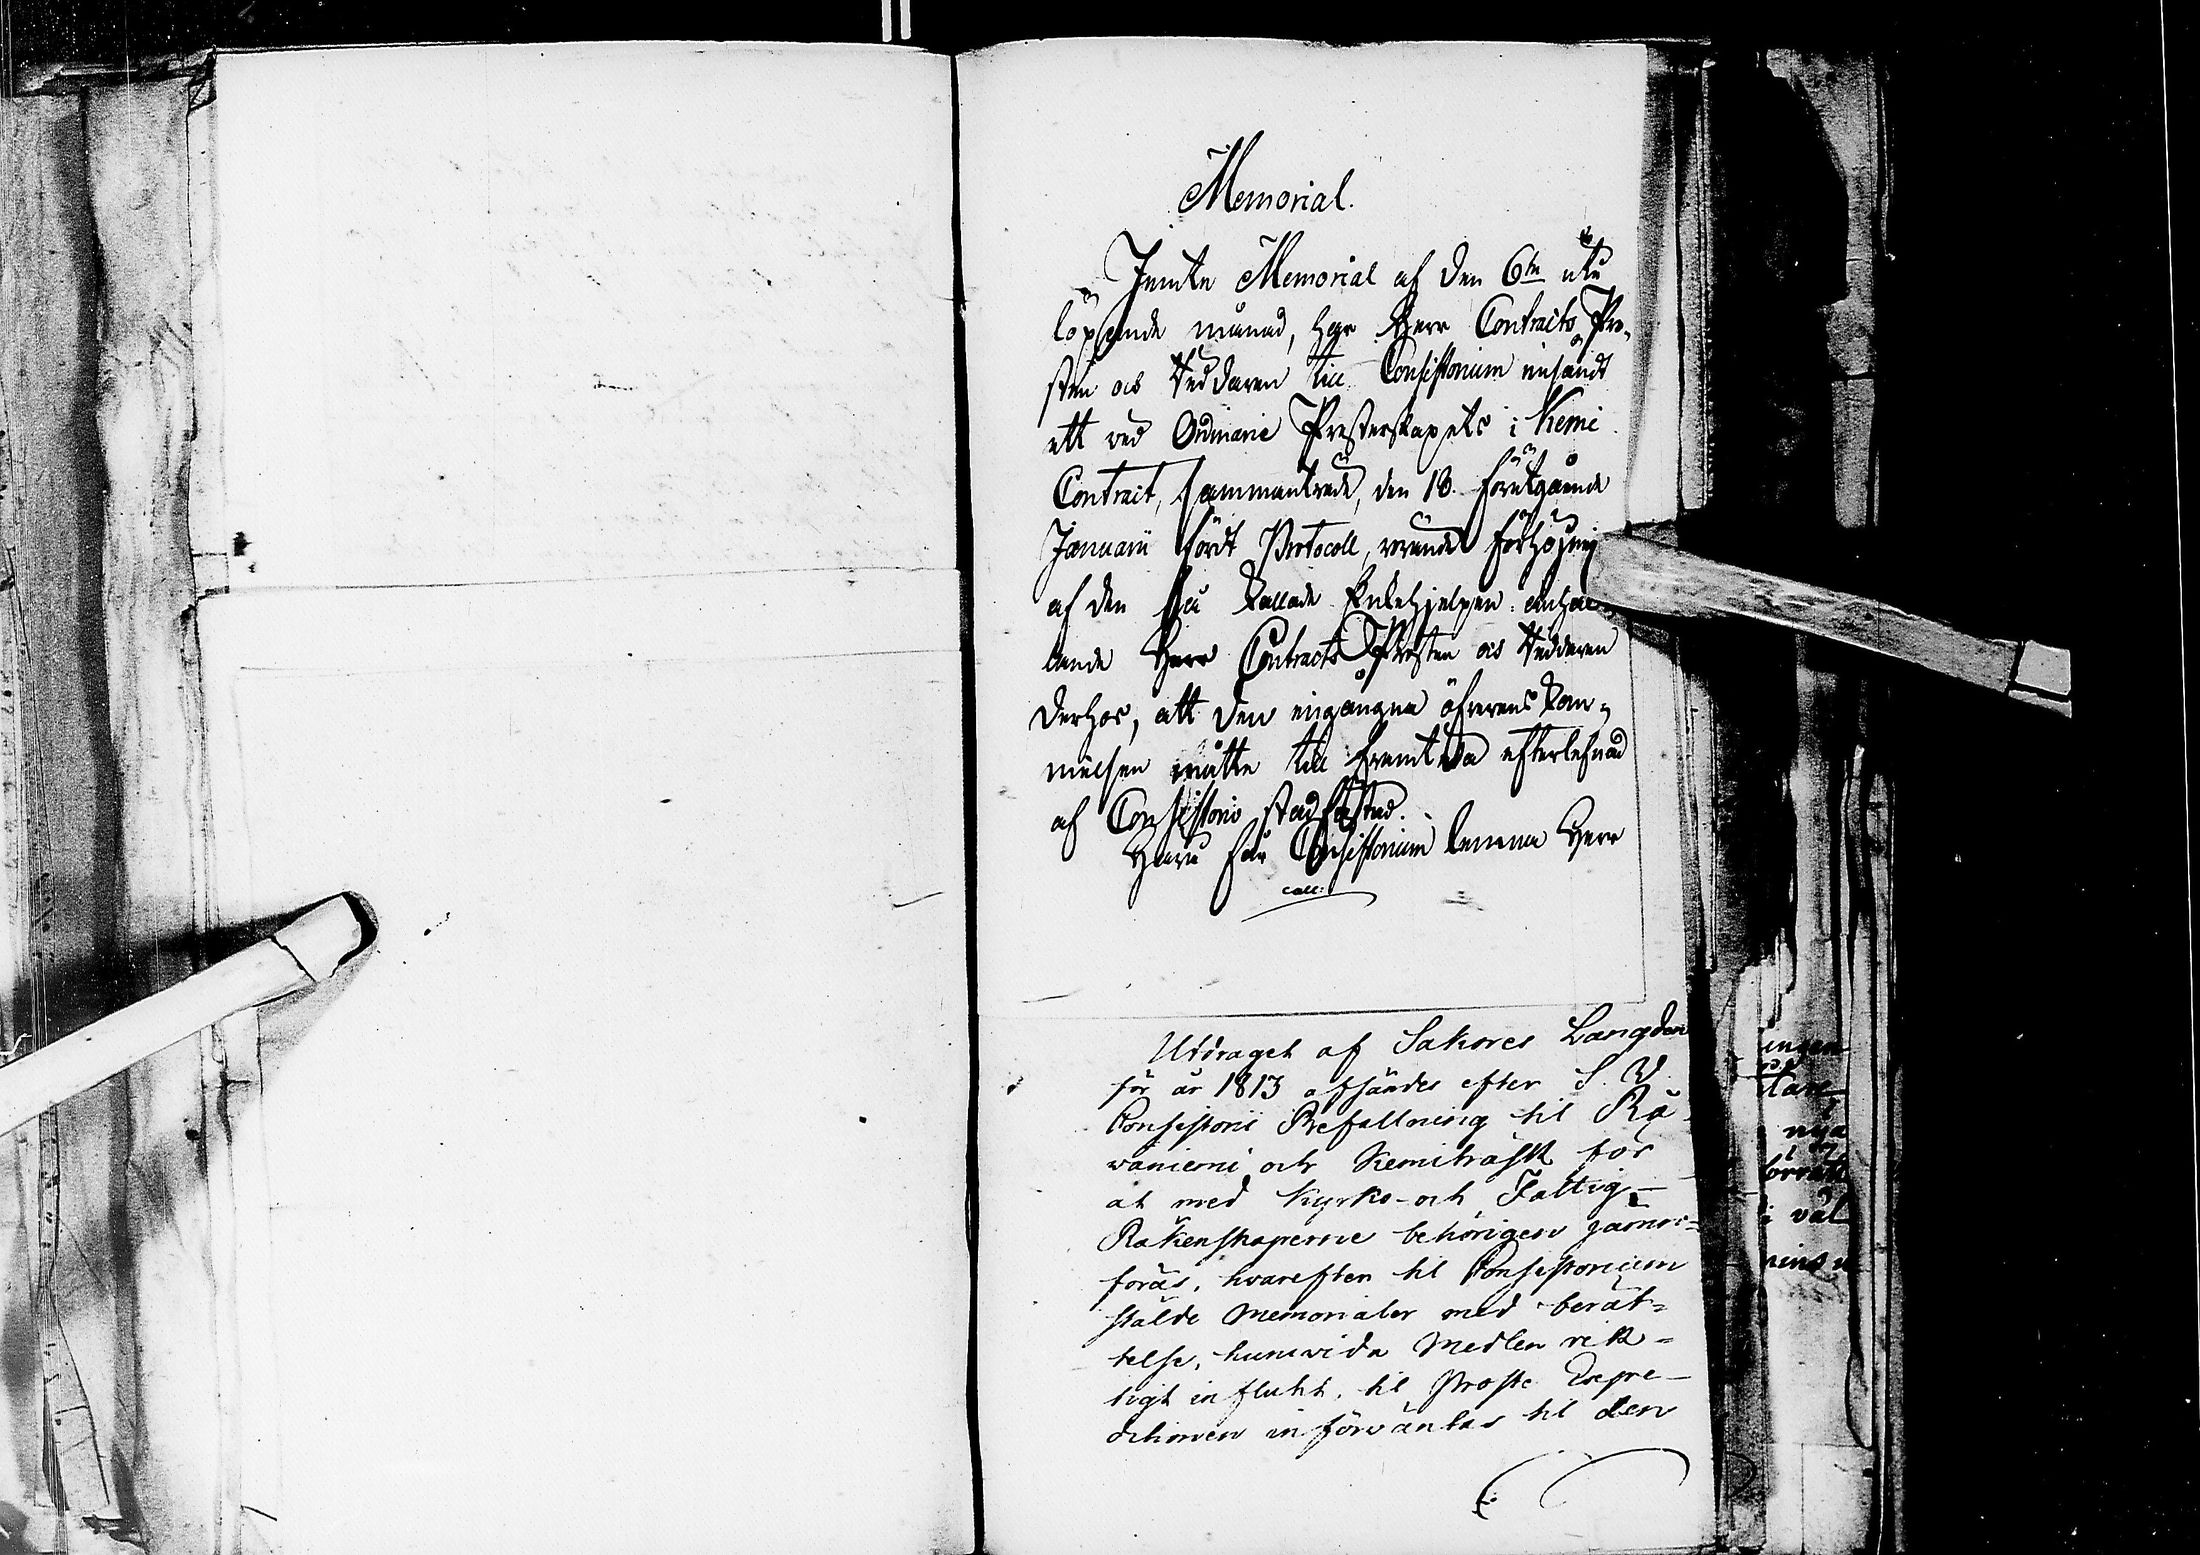 Memorial.
Jemte Memorial af den 6te uti
löpande månad, har Herr Contracts Pro-
sten och Riddaren till Consistorium insändt
ett ved Ordinarie Presterskapets i Kemi
Contract, sammanträde, den 18. förutgående
Januarii fördt Protocoll, rörande förhöjning
af den så kallade Enkehjelpen: anhål-
lande Herr Contracts Prosten och Riddaren
derhos, att den ingångna öfverens kom-
melsen måtte till framtida efterlefnad
af Consistorio stadfästad.
Häru får Consistorium lemna Herr
coll:
Utdraget af Saköres Längden
för år 1813 afsändes efter S. V.
Consistorii Befallning til Rå-
vaniemi och Kemiträsk för
at med Kyrko- och Fattig-
Räkenskaperne behörigen jämn-
föras, hvareften til Consistorium
stälde Memorialer med berät-
telse, huruvida Medlen rik-
tigt influtit, til Proste Expe-
ditionen införväntas til den
ungen
tare
nya
förrätt
i väl